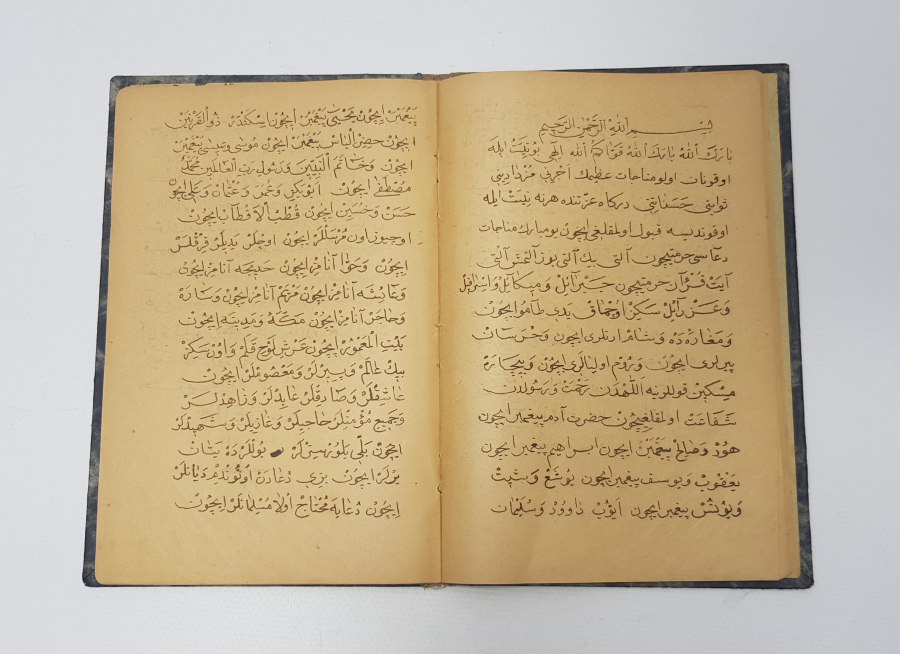 بِسْـــمِ اللهِ الرَّحْمٰنِ الرَّحِيمِ
بَارَكَ اللهُ بَارَكَ اللهُ الله الهى بو نِيَتْ ايله
اوقونان اولو مناجات عظيمك اجرنى مزدادينى
ثوابنى حَسَناتنى دركاه عزتنده هر نه نِيَتْ ايله
اوقونديسه قبول اولملقلغى ايچون بو مبارك مناجات
دعاسى حرمتيچون آلتى بيك آلتى يوز آلتمش آلتى
آيَتْ قُرْآن حرمتيچون جَبْرَائِلْ وَمِيكَائِلْ وَاِسْرَافِلْ
وَعَزْرَائِلْ سَكِزْ اوُچْمَاقْ يدى طَامُو ايچون
وَمَغَارَه دَه وَشَامْ ارنلرى ايچون وَخُرَسَانْ
پيرلرى ايچون وَرُومْ اوليالرى ايچون وَبِيچَارَه
مِسْكِينْ قوللرينه اَللّٰهدَن رَحْمَتْ وَرَسُولدن
شَفَاعَتْ اولملقلغيچون حضرت آدم پيغمبر ايچون
هُودْ وَصَالِحْ پَيْغَمْبَرْ ايچون ابراهيم پيغمبر ايچون
يَعْقُوبْ وَيوسف پيغمبر ايچون يُوشَعْ وَشِيتْ
وَيُونُسْ پيغمبر ايچون اَيُّوبْ دَاوُودْ وَسُلَيْمَانْ
پَيْغَمْبَرْ اِيچُونْ يَحْيٰى پَيْغَمْبَرْ اِيچُونْ اِسْكَنْدَرْ ذُو الْقَرْنَيْنْ
اِيچُونْ حِضِرْ اَلْيَاسْ پَيْغَمْبَرْ ايچون مُوسٰى وَعِيسٰى پَيْغَمْبَرْ
ايچون وَخَاتَمُ النَّبِيِّينَ وَرَسُولِ رَبِّ الْعَالَمِينَ مُحَمَّدْ
مُصْطَفٰى اِيچُونْ اَبُو بَكِرْ وَعُمَرْ وَعُثْمَانْ وَعَلِى ايچُونْ
حَسَنْ وَحُسَيْنْ اِيچُونْ قُطْبُ الْاَقْطَابْ اِيچُونْ
اوچيوز اون مُرْسَلْلَرْ ايچون اوچلَرْ يَدِيلَرْ قِرْقْلَرْ
اِيچُونْ وَحَوَّا آنَامِزْ اِيچُونْ خَدِيجَه آنَامِزْ اِيچُونْ
وَعَائِشَه آنَامِزْ اِيچُونْ مَرْيَمْ آنَامِزْ اِيچُونْ وَسَارَه
وَحَاجَرْ آنَامِزْ اِيچُونْ مَكَّه وَمَدِينَه اِيچُونْ
بَيْتِ الْمَعْمُورْ اِيچُونْ عَرْشْ لَوْحْ قَلَمْ وَاوُنْ سَكِزْ
بِيكْ عَالَمْ وَپِيرْلَرْ وَمَعْصُومْلَرْ اِيچُونْ
عَاشِقْلَرْ وَصَادِقْلَرْ عَابِدْلَرْ وَزَاهِدْلَرْ
وَجَمِيعِ مُؤْمِنْلَرْ حَاجِيلَرْ وَغَازِيلَرْ وَشَهِيدْلَرْ
اِيچُونْ بَلّى بَلُورْسِزْلَرْ يُوللَرْدَه يَتَانْ
پِرْلَرْ ايچُونْ بِزى دُعَادَنْ اوُنُوتْمَه دِيَانْلَرْ
اِيچُونْ دُعَايَه مُحْتَاجْ اوُلَانْ مُسِلْمَانْلَرْ اِيچُونْ